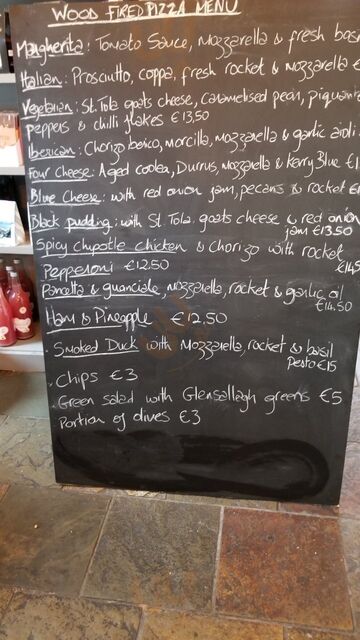 WOOD FIRED PIZZA MENU
Margherita: Tomato Sauce, Mozzarella & fresh basi
Italian: Prosciutto, coppa, fresh rocket & mozzarella €
Vegetarian: St. Tola goats cheese, Caramelised pear, piquant
peppers & chilli flakes €13.50
Iberican: Chorizo iberico, morcilla, mozzarella & garlic aioli
Four Cheese: Aged coolea, Durrus, Mozzarella & Kerry Blue €1
Blue Cheese: with red onion jam, pecans & rocket €1
Black pudding: with St. Tola goats cheese & red onion
jam €13.50
Spicy chipotle chicken & chorizo with rocket
€14.5
Pepperoni €12.50
Pancetta & guanciale, mozzarella, rocket & garlic oil
€14.50
Ham & Pineapple €12.50
Smoked Duck with Mozzarella, rocket & basil
pesto €15
Chips €3
Green salad with Glensallagh greens €5
Portion of olives €3